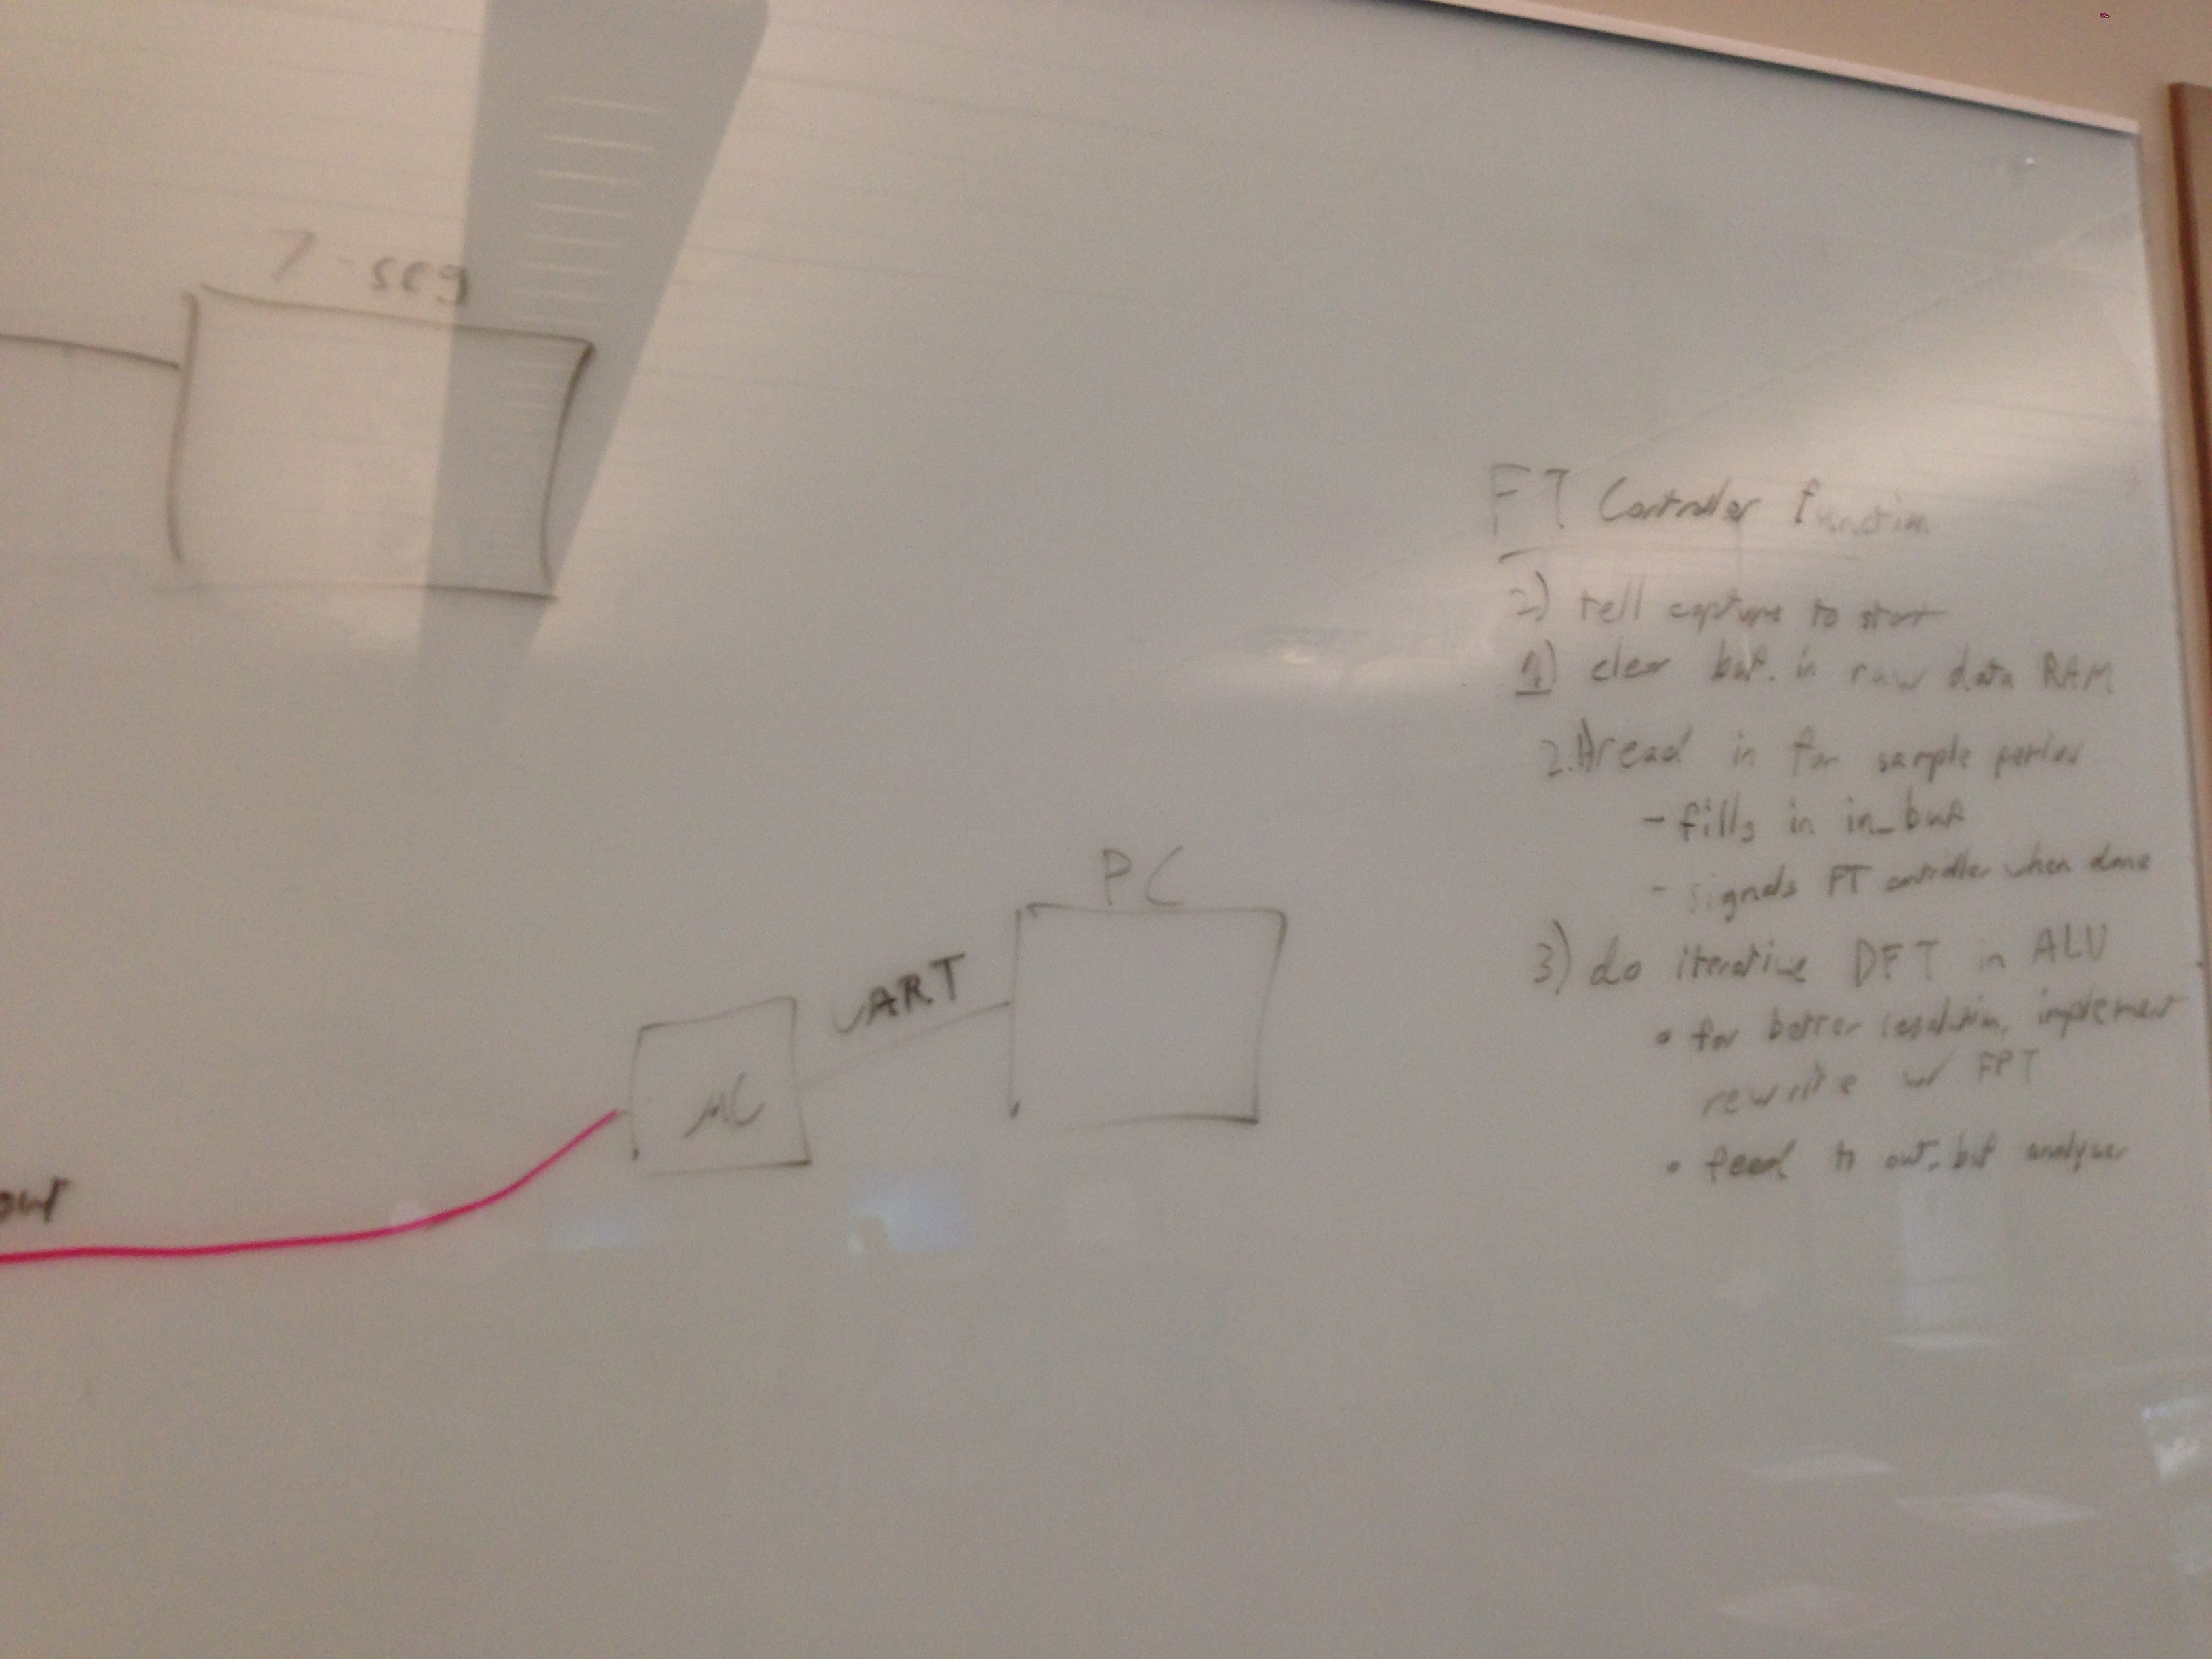 7-seg
FT Controller function
2) tell capture to start
1) clear buf. in raw data RAM
2.A) read in for sample period
- fills in in_buf
- signals FT controller when done
3) do iterative DFT in ALU
• for better resolution, implement
rewrite w/ FFT
• feed to out_buf analyzer
PC
UART
μC
out